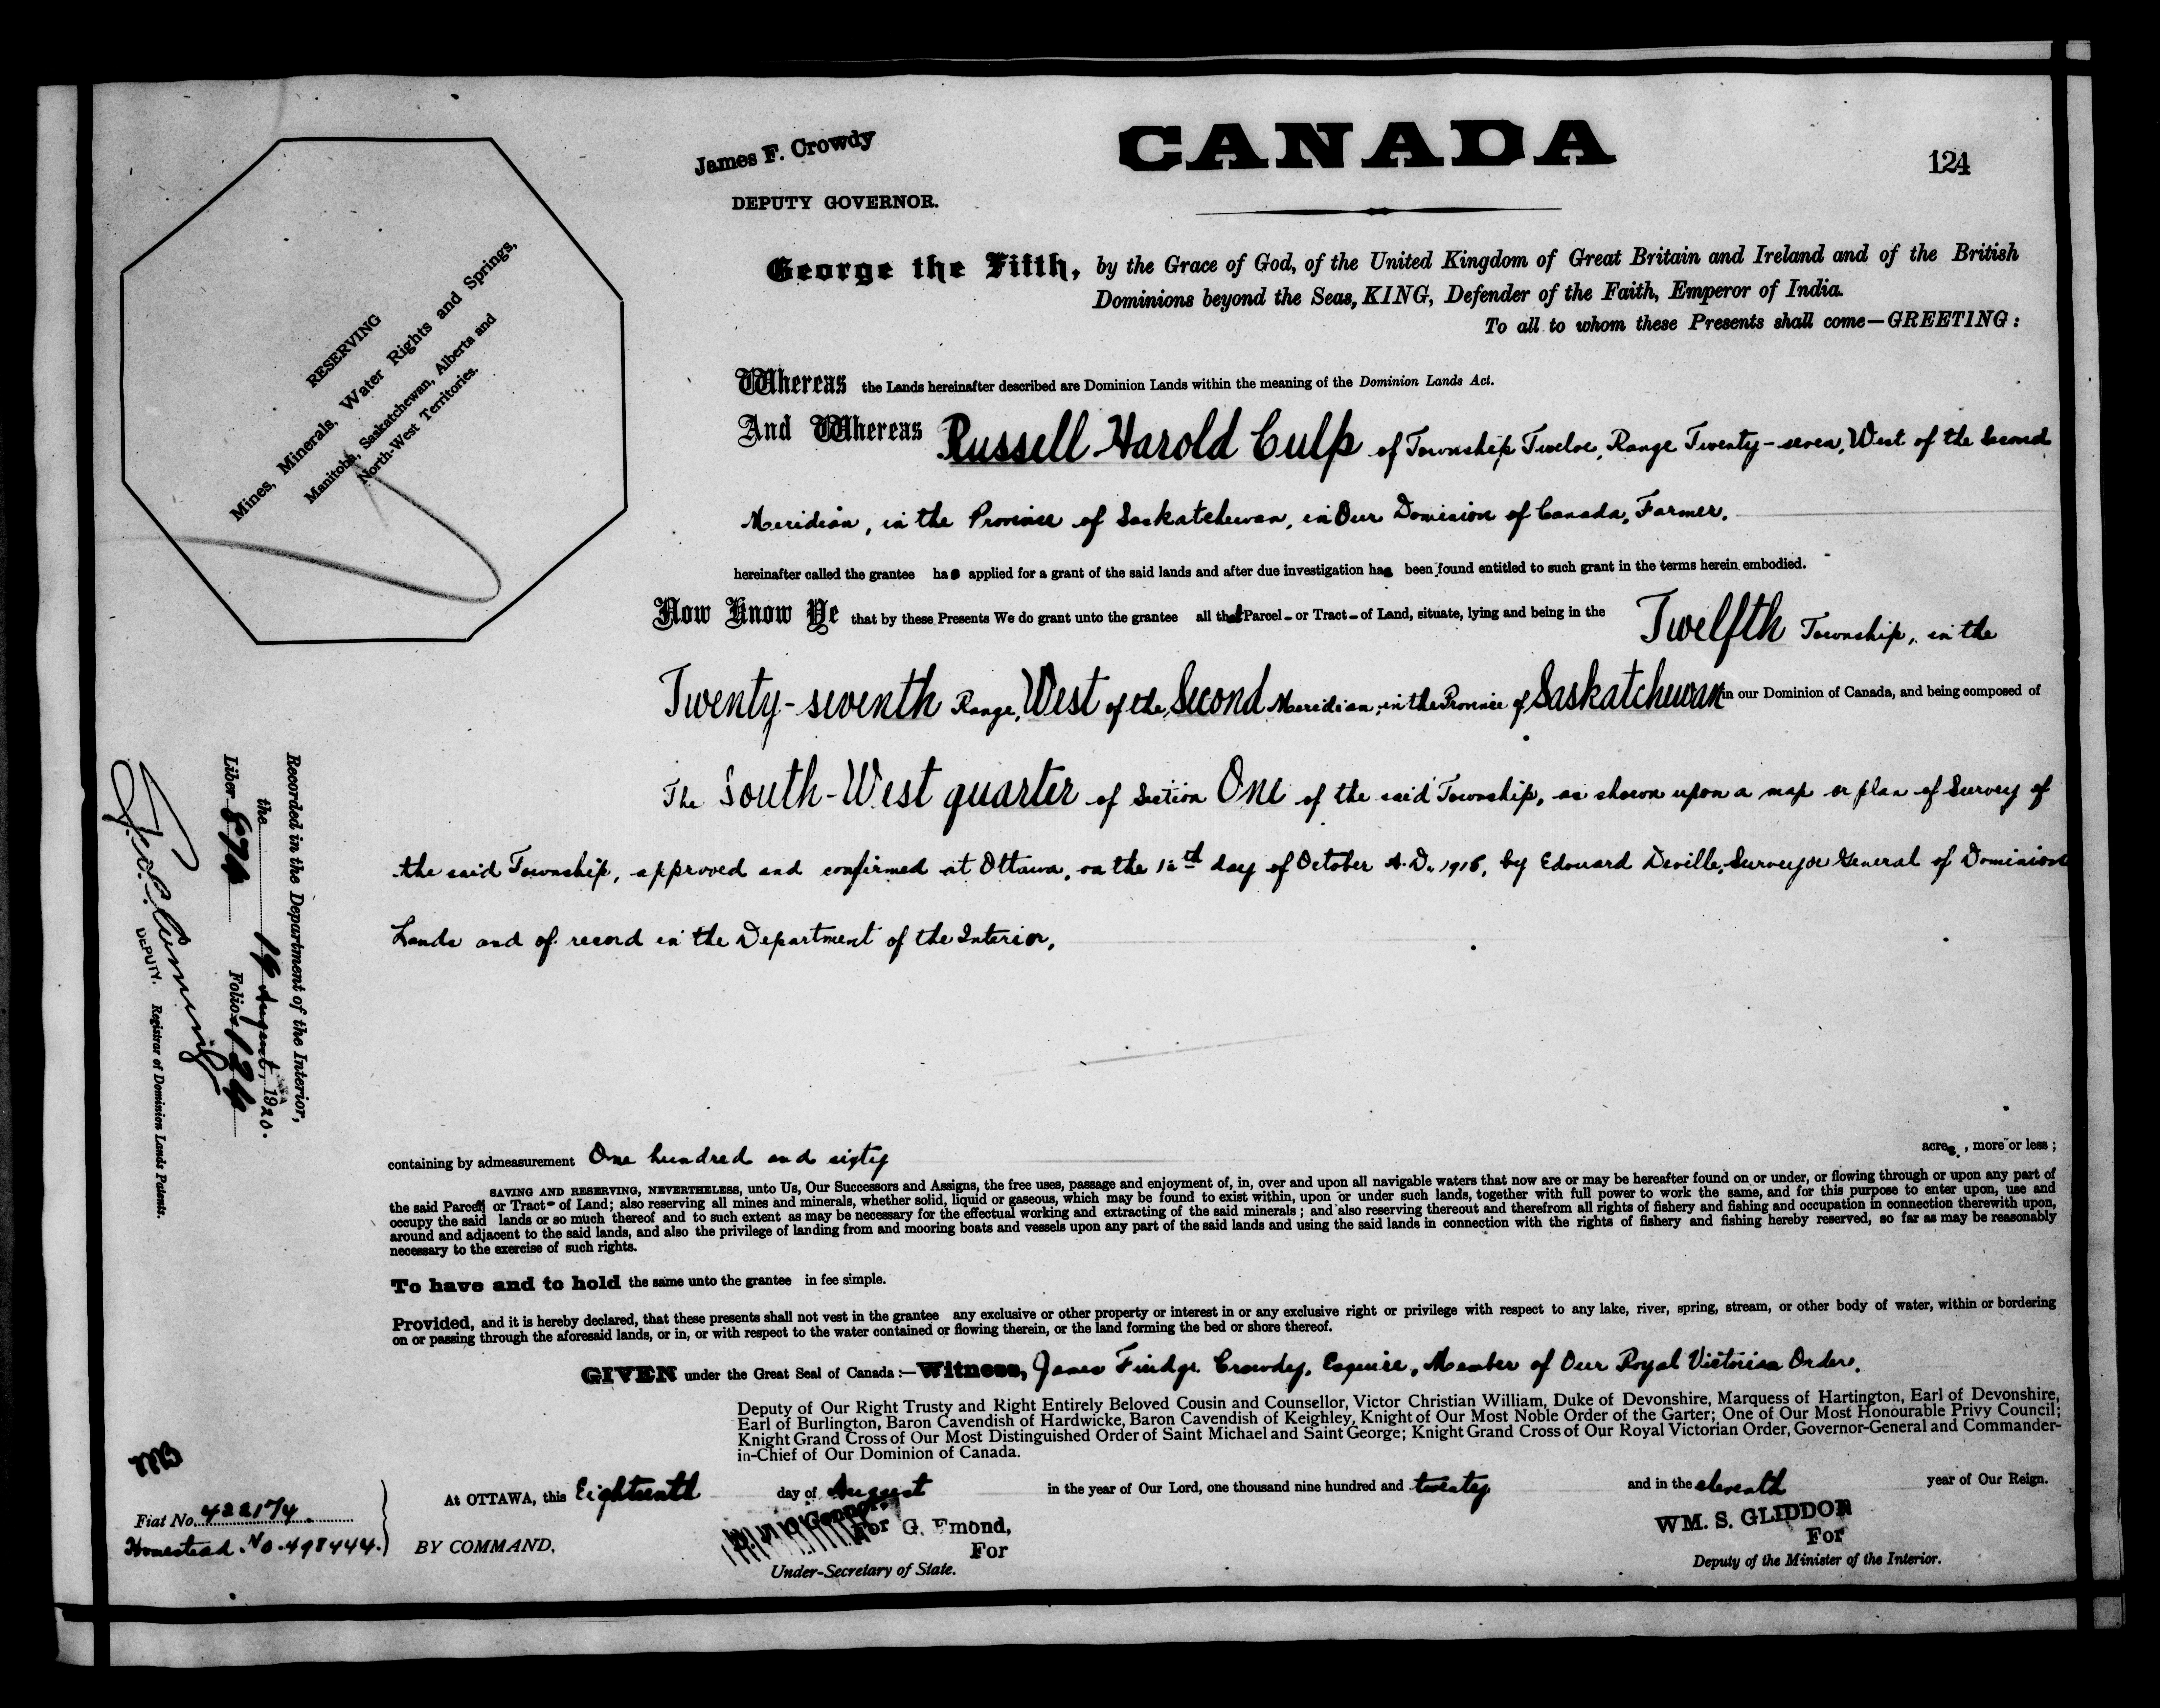 CANADA
124
James F. Crowdy
DEPUTY GOVERNOR.
RESERVING
Mines, Minerals, Water Rights and Springs,
Manitoba, Saskatchewan, Alberta and
North-West Territories.
George the Fifth, by the Grace of God, of the United Kingdom of Great Britain and Ireland and of the British
Dominions beyond the Seas, KING, Defender of the Faith, Emperor of India.
To all to whom these Presents shall come—GREETING:
Whereas the Lands hereinafter described are Dominion Lands within the meaning of the Dominion Lands Act.
And Whereas Russell Harold Culp of Township Twelve, Range Twenty-seven, West of the Second
Meridian, in the Province of Saskatchewan, in Our Dominion of Canada, Farmer.
hereinafter called the grantee has applied for a grant of the said lands and after due investigation has been found entitled to such grant in the terms herein embodied.
Now Know Ye that by these Presents We do grant unto the grantee all that Parcel - or Tract - of Land, situate, lying and being in the Twelfth Township, in the
Twenty-seventh Range, West of the Second Meridian, in the Province of Saskatchewan in our Dominion of Canada, and being composed of
The South-West quarter of Section One of the said Township, as shown upon a map or plan of Survey of
the said Township, approved and confirmed at Ottawa, on the day of October A.D. by Edouard Deville, Surveyor General of Dominion
Lands and of record in the Department of the Interior,
Recorded in the Department of the Interior,
the 19 August, 1920.
Liber 874 Folio 124
DEPUTY. Registrar of Dominion Lands Patents.
containing by admeasurement One hundred and sixty acres, more or less;
SAVING AND RESERVING, NEVERTHELESS, unto Us, Our Successors and Assigns, the free uses, passage and enjoyment of, in, over and upon all navigable waters that now are or may be hereafter found on or under, or flowing through or upon any part of
the said Parcel or Tract - of Land; also reserving all mines and minerals, whether solid, liquid or gaseous, which may be found to exist within, upon or under such lands, together with full power to work the same, and for this purpose to enter upon, use and
occupy the said lands or so much thereof and to such extent as may be necessary for the effectual working and extracting of the said minerals; and also reserving thereout and therefrom all rights of fishery and fishing and occupation in connection therewith upon,
around and adjacent to the said lands, and also the privilege of landing from and mooring boats and vessels upon any part of the said lands and using the said lands in connection with the rights of fishery and fishing hereby reserved, so far as may be reasonably
necessary to the exercise of such rights.
To have and to hold the same unto the grantee in fee simple.
Provided, and it is hereby declared, that these presents shall not vest in the grantee any exclusive or other property or interest in or any exclusive right or privilege with respect to any lake, river, spring, stream, or other body of water, within or bordering
on or passing through the aforesaid lands, or in, or with respect to the water contained or flowing therein, or the land forming the bed or shore thereof.
GIVEN under the Great Seal of Canada:—Witness, James Crowdy, Esquire, Member of Our Royal Victorian Order,
Deputy of Our Right Trusty and Right Entirely Beloved Cousin and Counsellor, Victor Christian William, Duke of Devonshire, Marquess of Hartington, Earl of Devonshire,
Earl of Burlington, Baron Cavendish of Hardwicke, Baron Cavendish of Keighley, Knight of Our Most Noble Order of the Garter; One of Our Most Honourable Privy Council;
Knight Grand Cross of Our Most Distinguished Order of Saint Michael and Saint George; Knight Grand Cross of Our Royal Victorian Order, Governor-General and Commander-
in-Chief of Our Dominion of Canada.
At OTTAWA, this Eighteenth day of August in the year of Our Lord, one thousand nine hundred and twenty and in the eleventh year of Our Reign.
Fiat No. 422174.
Homestead No. 498444.
BY COMMAND,
For G. Emond,
For
Under-Secretary of State.
WM. S. GLIDDON
For
Deputy of the Minister of the Interior.